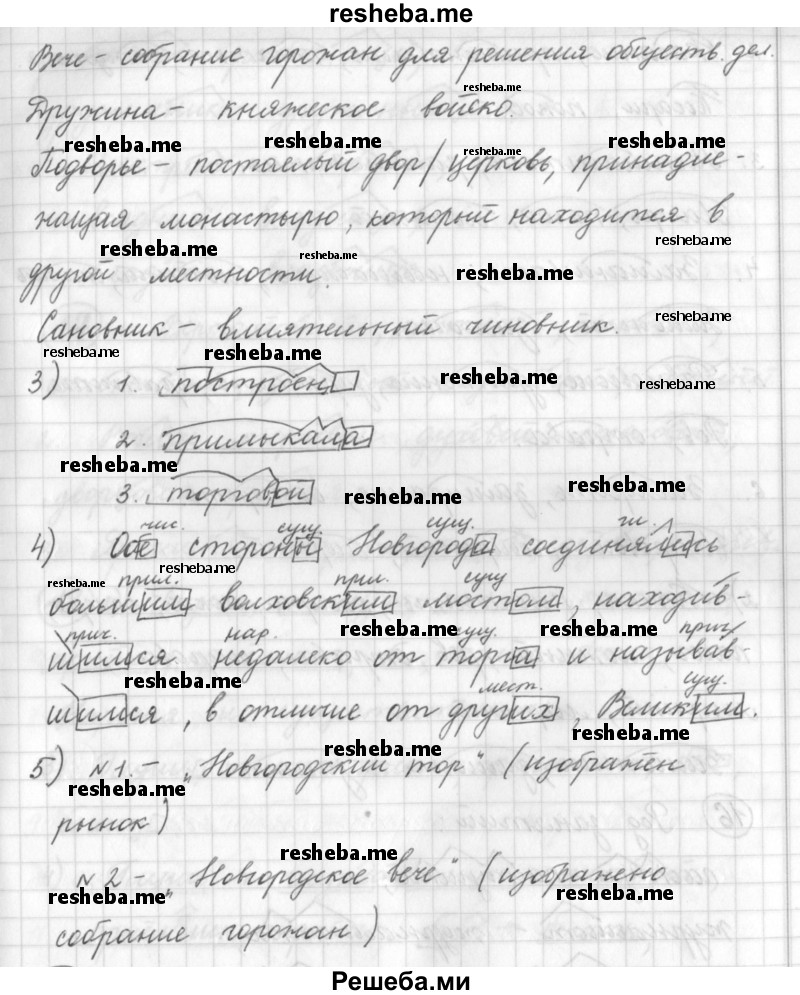 resheba.me
Вече – собрание горожан для решения обществ. дел.
resheba.me
Дружина – княжеское войско.
resheba.me resheba.me resheba.me resheba.me
Подворье – постоялый двор / церковь, принадле-
жащая монастырю, который находится в
resheba.me resheba.me resheba.me
другой местности. resheba.me
Сановник – влиятельный чиновник. resheba.me
resheba.me resheba.me
3) 1. построен resheba.me resheba.me
2. примыкала
resheba.me
3. торговой resheba.me resheba.me
чис. сущ. сущ. гл.
4) Обе стороны Новгорода соединялись
resheba.me resheba.me
прил. прил. сущ
большим волховским мостом, находив-
resheba.me resheba.me
прич. нар. сущ. прич
шимся недалеко от торга и называв-
resheba.me
мест. сущ.
шимся, в отличие от других, Великим.
resheba.me resheba.me
5) N1. – „Новгородский тор" (изображён
resheba.me
рынок)
resheba.me
N2 – „Новгородское вече" (изображено
resheba.me resheba.me
собрание горожан)
Решеба.ми